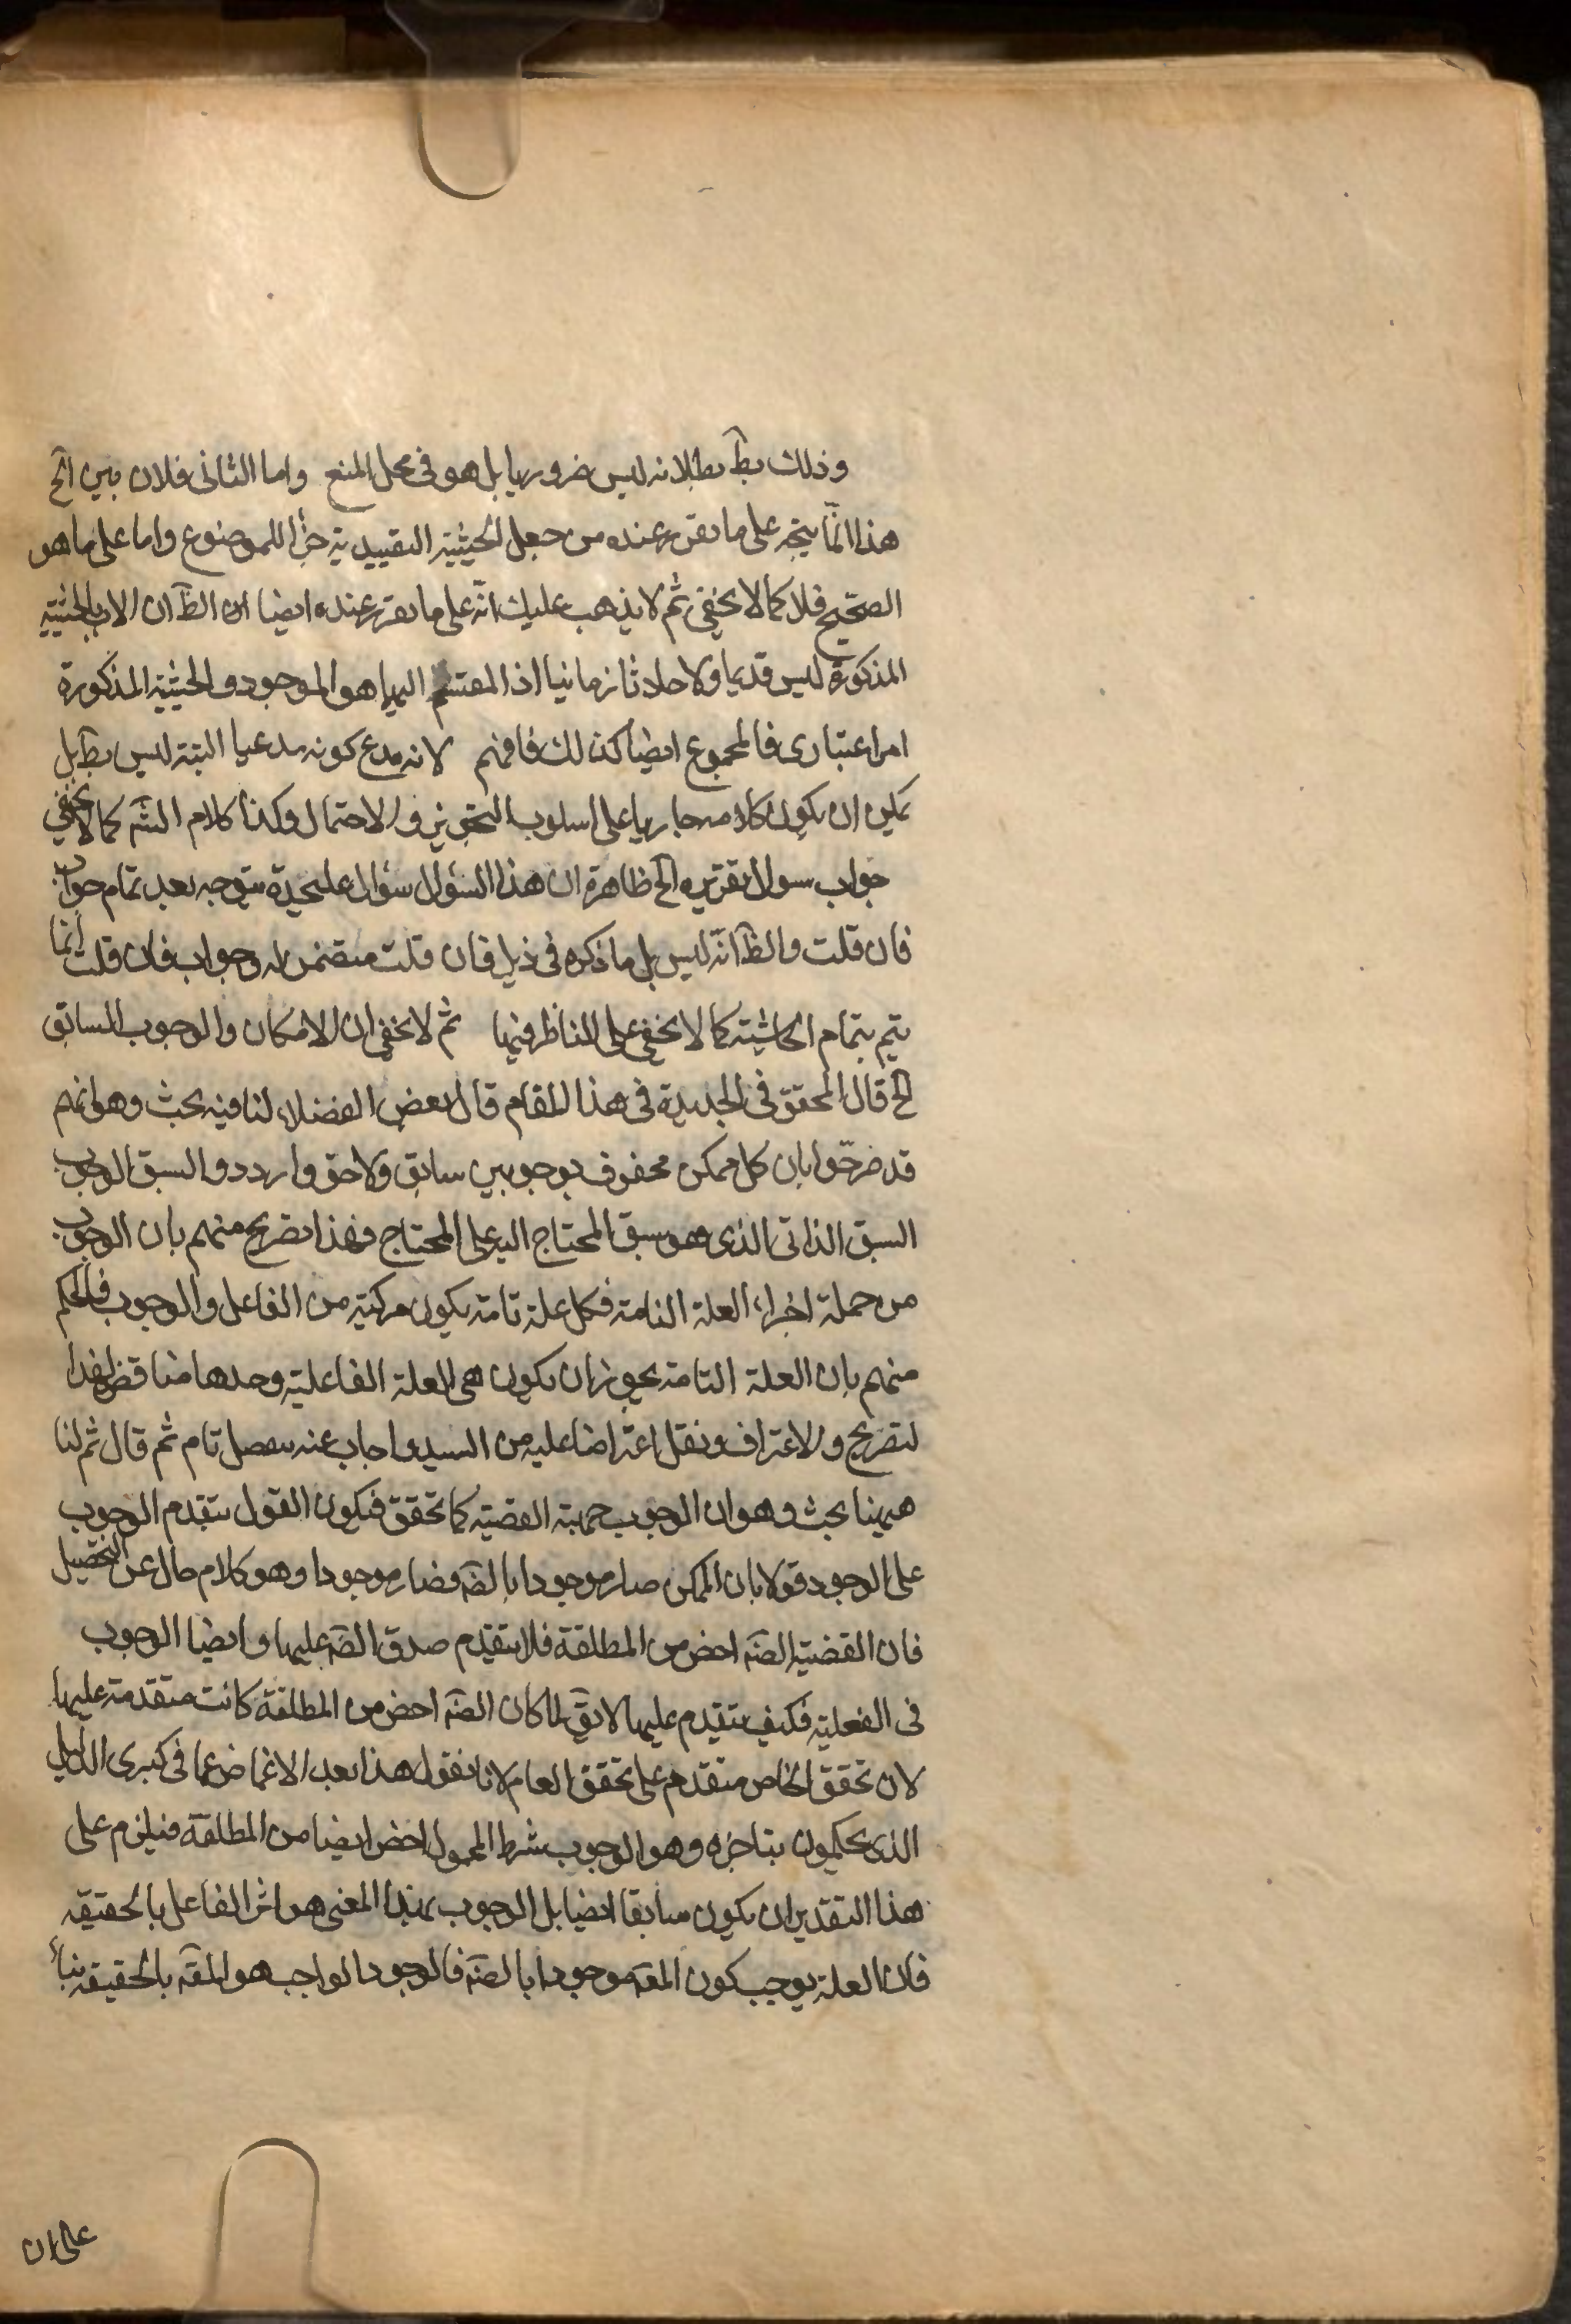 وذلك بط بطلانه ليس ضروريا بل هو في محل المنع واما الثاني فلان بين الخ
هذا انما يتجه على ما تقرر عنده من جعل الحيثية التقييدية جزأ للموضوع واما على ما هو
الصحيح فلا كما لا يخفى ثم لا يذهب عليك انه على ما تقرر عنده ايضا ان الظ ان الاب بالحيثية
المذكورة ليس قديما ولا حادثا زمانيا اذ المقتسم اليها هو الموجود والحيثية المذكورة
امر اعتباري فالمجموع ايضا كذلك فافهم لانه مدع كونه مدعيا البتة ليس بظ بل
يمكن ان يكون كلامه جاريا على اسلوب التجويز والاحتمال وكذا كلام الشم كما لا يخفى
جواب سوال تقريره الخ ظاهره ان هذا السؤال سؤال عليحدة يتوجه بعد تمام جواب
فان قلت والظ انه ليس بل ما ذكره في ذيل فان قلت متضمن له وجواب فان قلت انما
يتم بتمام الحاشية كما لا يخفى على الناظر فيها ثم لا يخفى ان الامكان والوجوب السابق
الخ قال المحقق في الجديدة في هذا المقام قال بعض الفضلاء لنا فيه بحث وهو انهم
قد صرحوا بان كل ممكن محفوف بوجوبين سابق ولاحق وارددوا السبق الوجوب
السبق الذاتي الذي هو سبق المحتاج اليه على المحتاج فهذا تصريح منهم بان الوجوب
من جملة اجزاء العلة التامة فكل علة تامة يكون مركبة من الفاعل والوجوب فالحكم
منهم بان العلة التامة يجوز ان يكون هي العلة الفاعلية وحدها مناقض لهذا
لتصريح والاعتراف ونقل اعتراضا عليه من السيد واجاب عنه تام ثم قال ثم لنا
ههنا بحث وهو ان الوجوب جهة القضية كما تحقق فيكون القول بتقدم الوجوب
على الوجود قولا بان الممكن صار موجودا بالضه فصار موجودا وهو كلام خال عن التحصيل
فان القضية الضه اخص من المطلقة فلا يتقدم صدق الضه عليها وايضا الوجوب
في الفعلية فكيف يتقدم عليها لا يق لما كان الضه اخص من المطلقة كانت متقدمة عليها
لان تحقق الخاص متقدم على تحقق العام لانا نقول هذا بعد الاغماض عما في كبرى الدليل
الذي يحكمون بتاخره وهو الوجوب بشرط المحمول اخص ايضا من المطلقة فيلزم على
هذا التقدير ان يكون سابقا ايضا بل الوجوب بهذا المعنى هو اثر الفاعل بالحقيقة
فان العلة يوجب كون المعه موجودا بالضه فالوجود الواجب هو المعه بالحقيقة بناء
على ان